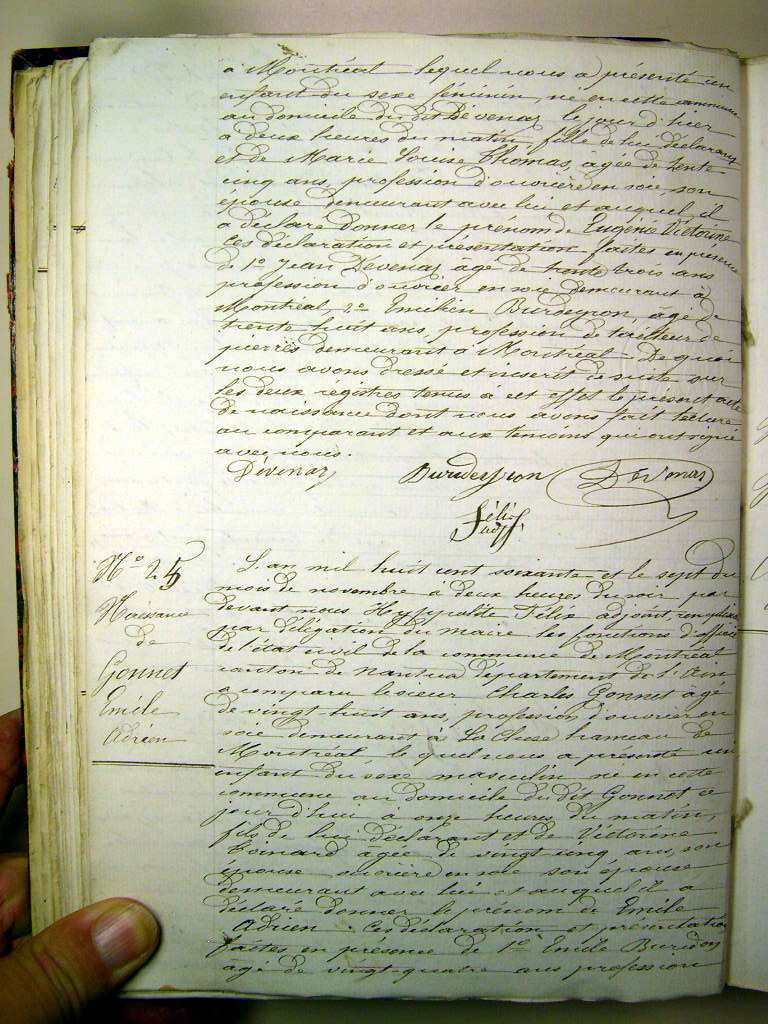 à Montréal lequel nous a présenté un
enfant du sexe féminin, né en cette commune
au domicile du dit Dévenaz le jour d'hier
à deux heures du matin, fille de lui déclarant
et de Marie Louise Thomas, agée de trente
cinq ans, profession d'ouvrière en soie son
épouse demeurant avec lui et auquel il
a déclaré donner le prénom de Eugénie Victorine
Ces déclaration et présentation faites en présence
de 1o Jean Devenaz âgé de trente trois ans
profession d'ouvrier en soie demeurant à
Montréal, 2o Emilien Burdeyron, agé de
trente huit ans, profession de tailleur de
pierres demeurant à Montréal. De quoi
nous avons dressé et inscrit de suite sur
les deux régistres tenus à cet effet le présent acte
de naissance dont nous avons fait lecture
au comparant et aux témoins qui ont signé
avec nous.
Dévenaz Burdeyron Devenas
Félix
adjt
No 25
Naissance
de
Gonnet
Emile
Adrien
L'an mil huit cent soixante et le sept du
mois de novembre à deux heures du soir par
devant nous Hyppolite Félix adjoint, remplissant
par délégation du maire les fonctions d'officier
de l'état civil de la commune de Montréal
canton de Nantua département de l'Ain
a comparu le sieur Charles Gonnet agé
de vingt huit ans, profession d'ouvrier en
soie demeurant à La Cluse hameau de
Montréal lequel nous a présenté un
enfant du sexe masculin né en cette
commune au domicile du dit Gonnet ce
jour d'hui à onze heures du matin,
fils de lui déclarant et de Victorine
Poinard âgée de vingt cinq ans, son
épouse ouvrière en soie son épouse
demeurant avec lui et auquel il a
déclaré donner le prénom de Emile
Adrien. Ces déclaration et présentation
faites en présence de 1o Emile Burdon
âgé de vingt-quatre ans profession